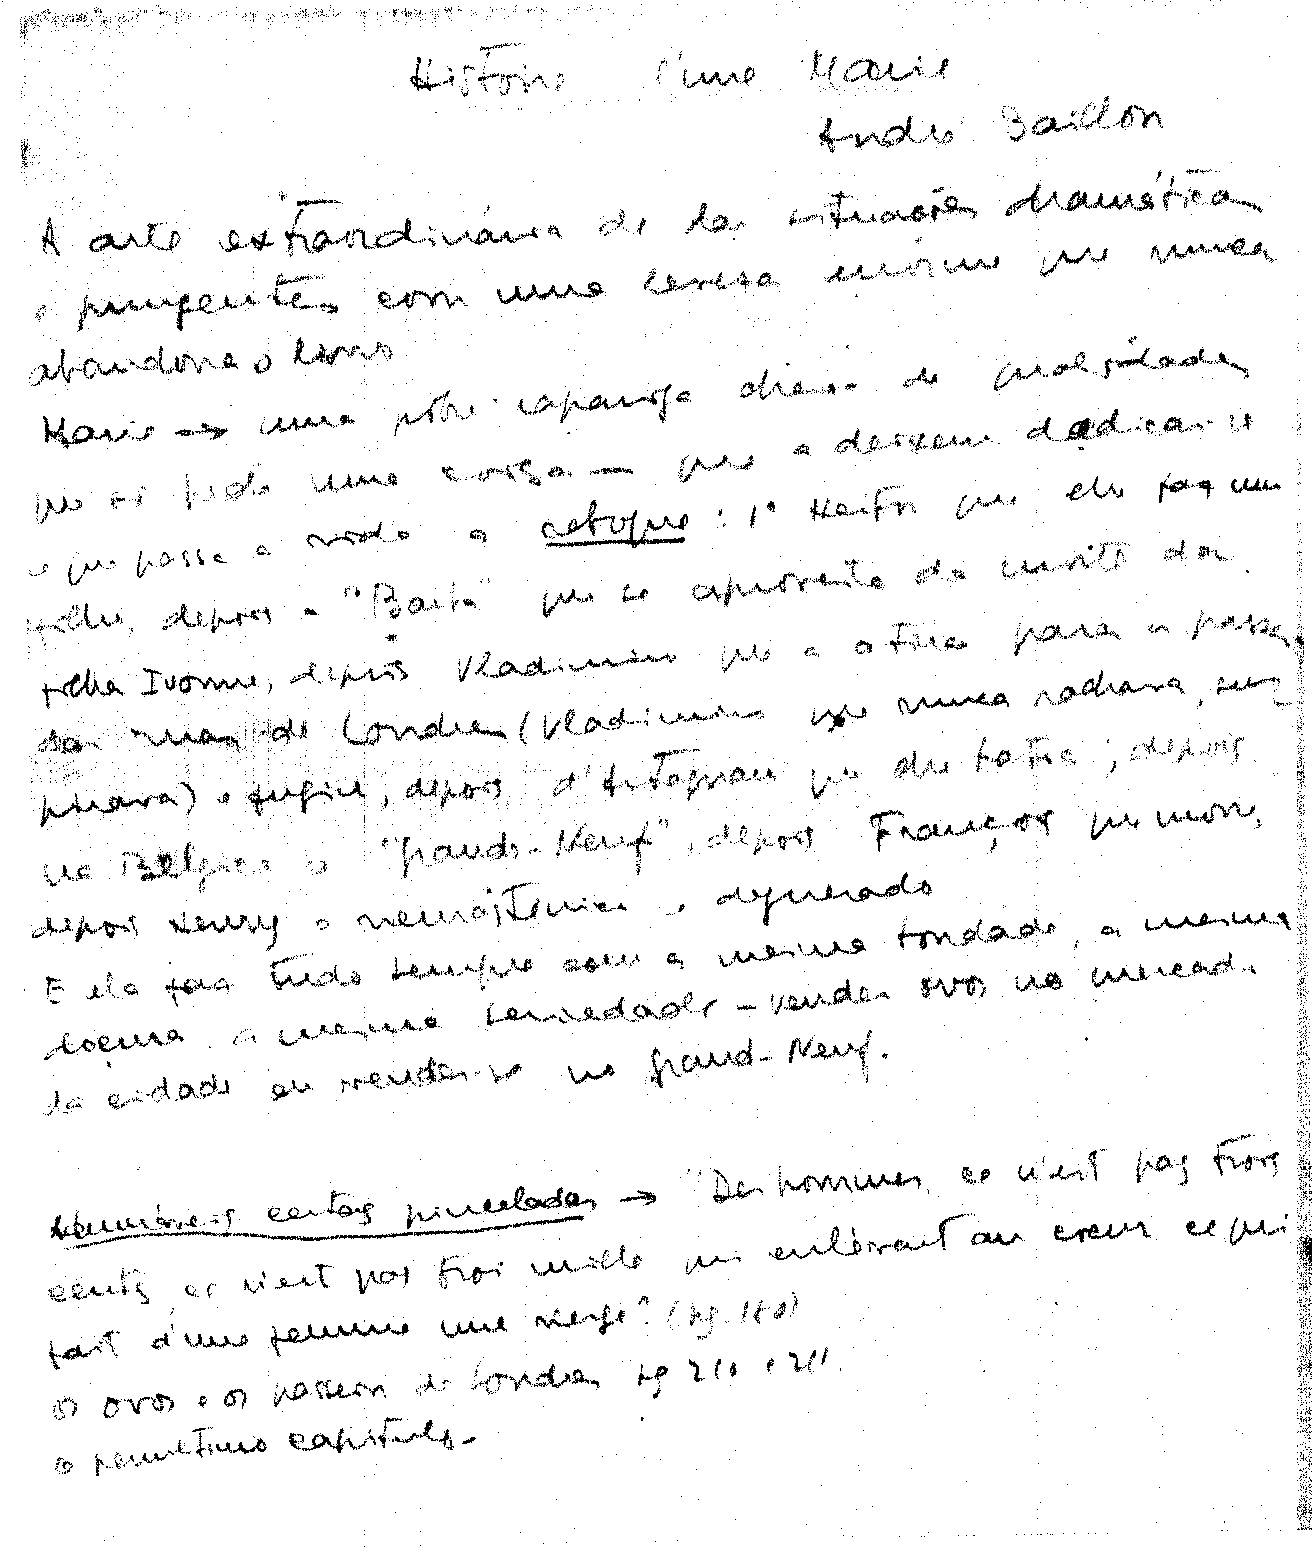 Histoire d'une Marie
André Baillon
A arte extraordinária de dar situações dramáticas
e pungentes com uma leveza enorme que nunca
abandona o livro
Marie → uma pobre rapariga cheia de qualidades
que só pede uma coisa — que a deixem dedicar-se
e que passa a vida a : 1º Hector que ele faz um
filho, depois a "" que se aproveita da morte da
filha Ivonne, depois Vladimir que a atira para os passeios
das ruas de Londres (Vladimir que nunca rachava,
) e fugiu, depois d'Artagnan que lhe batia; depois
na Bélgica o "Grand-Neuf", depois François que morre,
depois Henry o neurasténico e degenerado
E ela faz tudo sempre com a mesma bondade, a mesma
doçura a mesma seriedade – vender ovos no mercado
da cidade ou vender-se no Grand-Neuf.
certas pinceladas → "Des hommes, ce n'est pas trois
cents, ce n'est pas trois mille qui enlèvent au coeur ce qui
fait d'une femme une vierge". (pg. )
os ovos e os passeios de Londres pg 210 e 211.
o penúltimo capítulo.